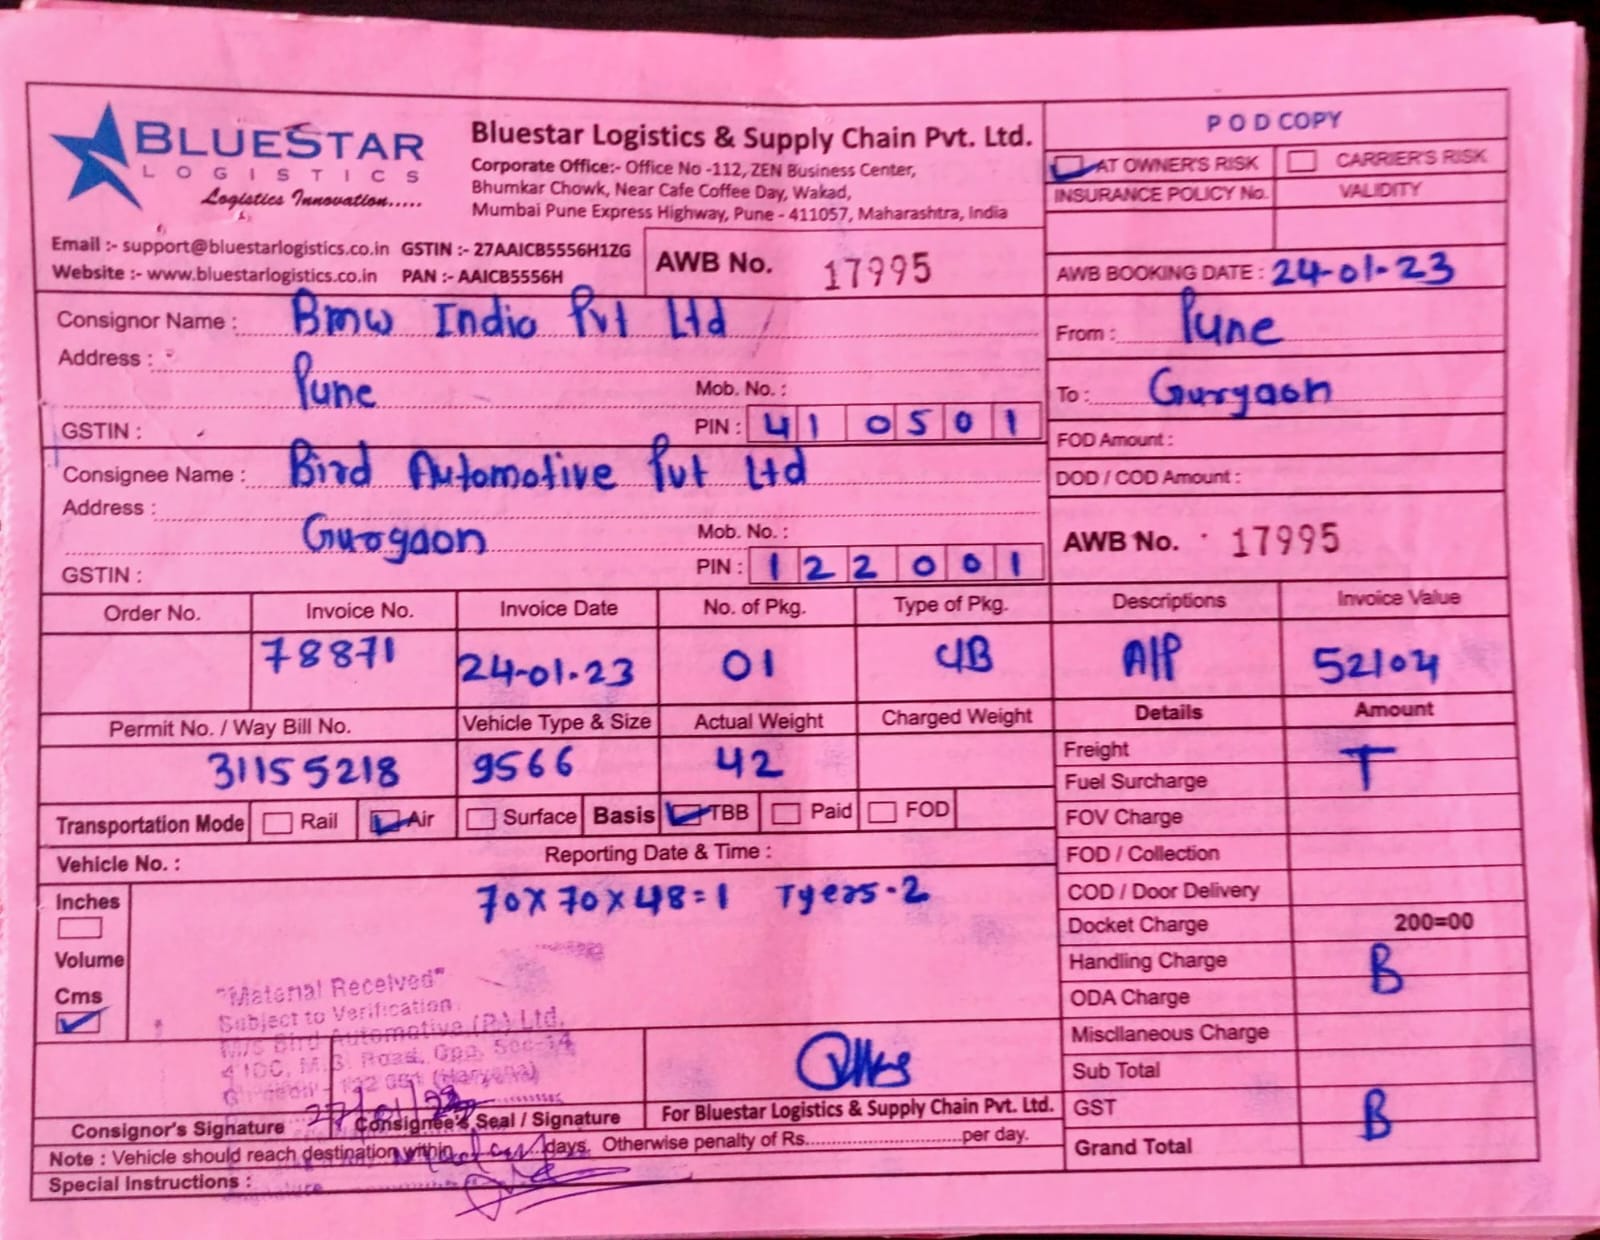 BLUESTAR
LOGISTICS
Logistics Innovation.....
Bluestar Logistics & Supply Chain Pvt. Ltd.
Corporate Office:- Office No -112, ZEN Business Center,
Bhumkar Chowk, Near Cafe Coffee Day, Wakad,
Mumbai Pune Express Highway, Pune - 411057, Maharashtra, India
Email :- support@bluestarlogistics.co.in GSTIN :- 27AAICB5556H1ZG
Website :- www.bluestarlogistics.co.in PAN :- AAICB5556H
AWB No. 17995
POD COPY
AT OWNER'S RISK CARRIER'S RISK
INSURANCE POLICY No. VALIDITY
AWB BOOKING DATE : 24-01-23
Consignor Name : Bmw India Pvt Ltd
Address :
Pune Mob. No. :
GSTIN : PIN : 410501
From : Pune
To : Gurgaon
FOD Amount :
DOD / COD Amount :
Consignee Name : Bird Automotive Pvt Ltd
Address :
Gurgaon Mob. No. :
GSTIN : PIN : 122001
AWB No. 17995
Order No. Invoice No. Invoice Date No. of Pkg. Type of Pkg. Descriptions Invoice Value
78871 24-01-23 01 C/B A/P 52104
Permit No. / Way Bill No. Vehicle Type & Size Actual Weight Charged Weight Details Amount
31155218 9566 42
Freight T
Fuel Surcharge
Transportation Mode Rail Air Surface Basis TBB Paid FOD
FOV Charge
Vehicle No. : Reporting Date & Time :
FOD / Collection
Inches
70x70x48=1 Tyers-2
COD / Door Delivery
Docket Charge 200=00
Volume
Handling Charge B
Cms
ODA Charge
"Material Received"
Subject to Verification
M/s Bird Automotive (P.) Ltd.
Miscllaneous Charge
Sub Total
27/01/23
Consignor's Signature Consignee's Seal / Signature For Bluestar Logistics & Supply Chain Pvt. Ltd.
GST B
Note : Vehicle should reach destination within days. Otherwise penalty of Rs. per day.
Grand Total
Special Instructions :